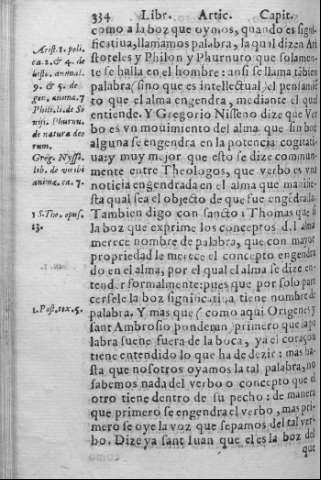 334 Libr. Artic. Capit.
como a la boz que oymos, quando es signi-
ficatiua, llamamos palabra, la qual dizen Ari
stoteles y Philon y Phurnuto que solamen-
te se halla en el hombre: ansi se llama tābien
palabra (sino que es intellectual) el pensamiē
to que el alma engendra, mediante el qual
entiende. Y Gregorio Nisseno dize que Ver
bo es vn mouimiento del alma que sin boz
alguna se engendra en la potencia cogitati-
ua: y muy mejor que esto se dize commun-
mente entre Theologos, que verbo es vna
noticia engendrada en el alma que manifie-
sta qual sea el objecto de que fue engēdrada.
Tambien digo con sancto Thomas que si
la boz que exprime los conceptos del alma
merece nombre de palabra, que con mayor
propriedad le merece el concepto engendra
do en el alma, por el qual el alma se dize en-
tender formalmente: pues que por solo pare
cersele la boz significatiua, tiene nombre de
palabra. Y mas que (como aqui Origenes y
sant Ambrosio ponderan) primero que la pa
labra suene fuera de la boca, ya el coraçon
tiene entendido lo que ha de dezir: mas ha-
sta que nosotros oyamos la tal palabra, no
sabemos nada del verbo o concepto que el
otro tiene dentro de su pecho: de manera
que primero se engendra el verbo, mas pri-
mero se oye la voz que sepamos del tal ver-
bo. Dize ya sant Iuan que el es la boz del
que
Arist. 1. poli.
ca. 2. & 4. de
histo. animal.
9. & 5. de
gen. anima. 7
Philo. li. de So
nijs. Phurnu.
de natura deo
rum.
Greg. Nysse.
lib. de viribꝰ
animæ. ca. 7.
1 S. Tho. opus.
13.
1. Post. tex. 5.